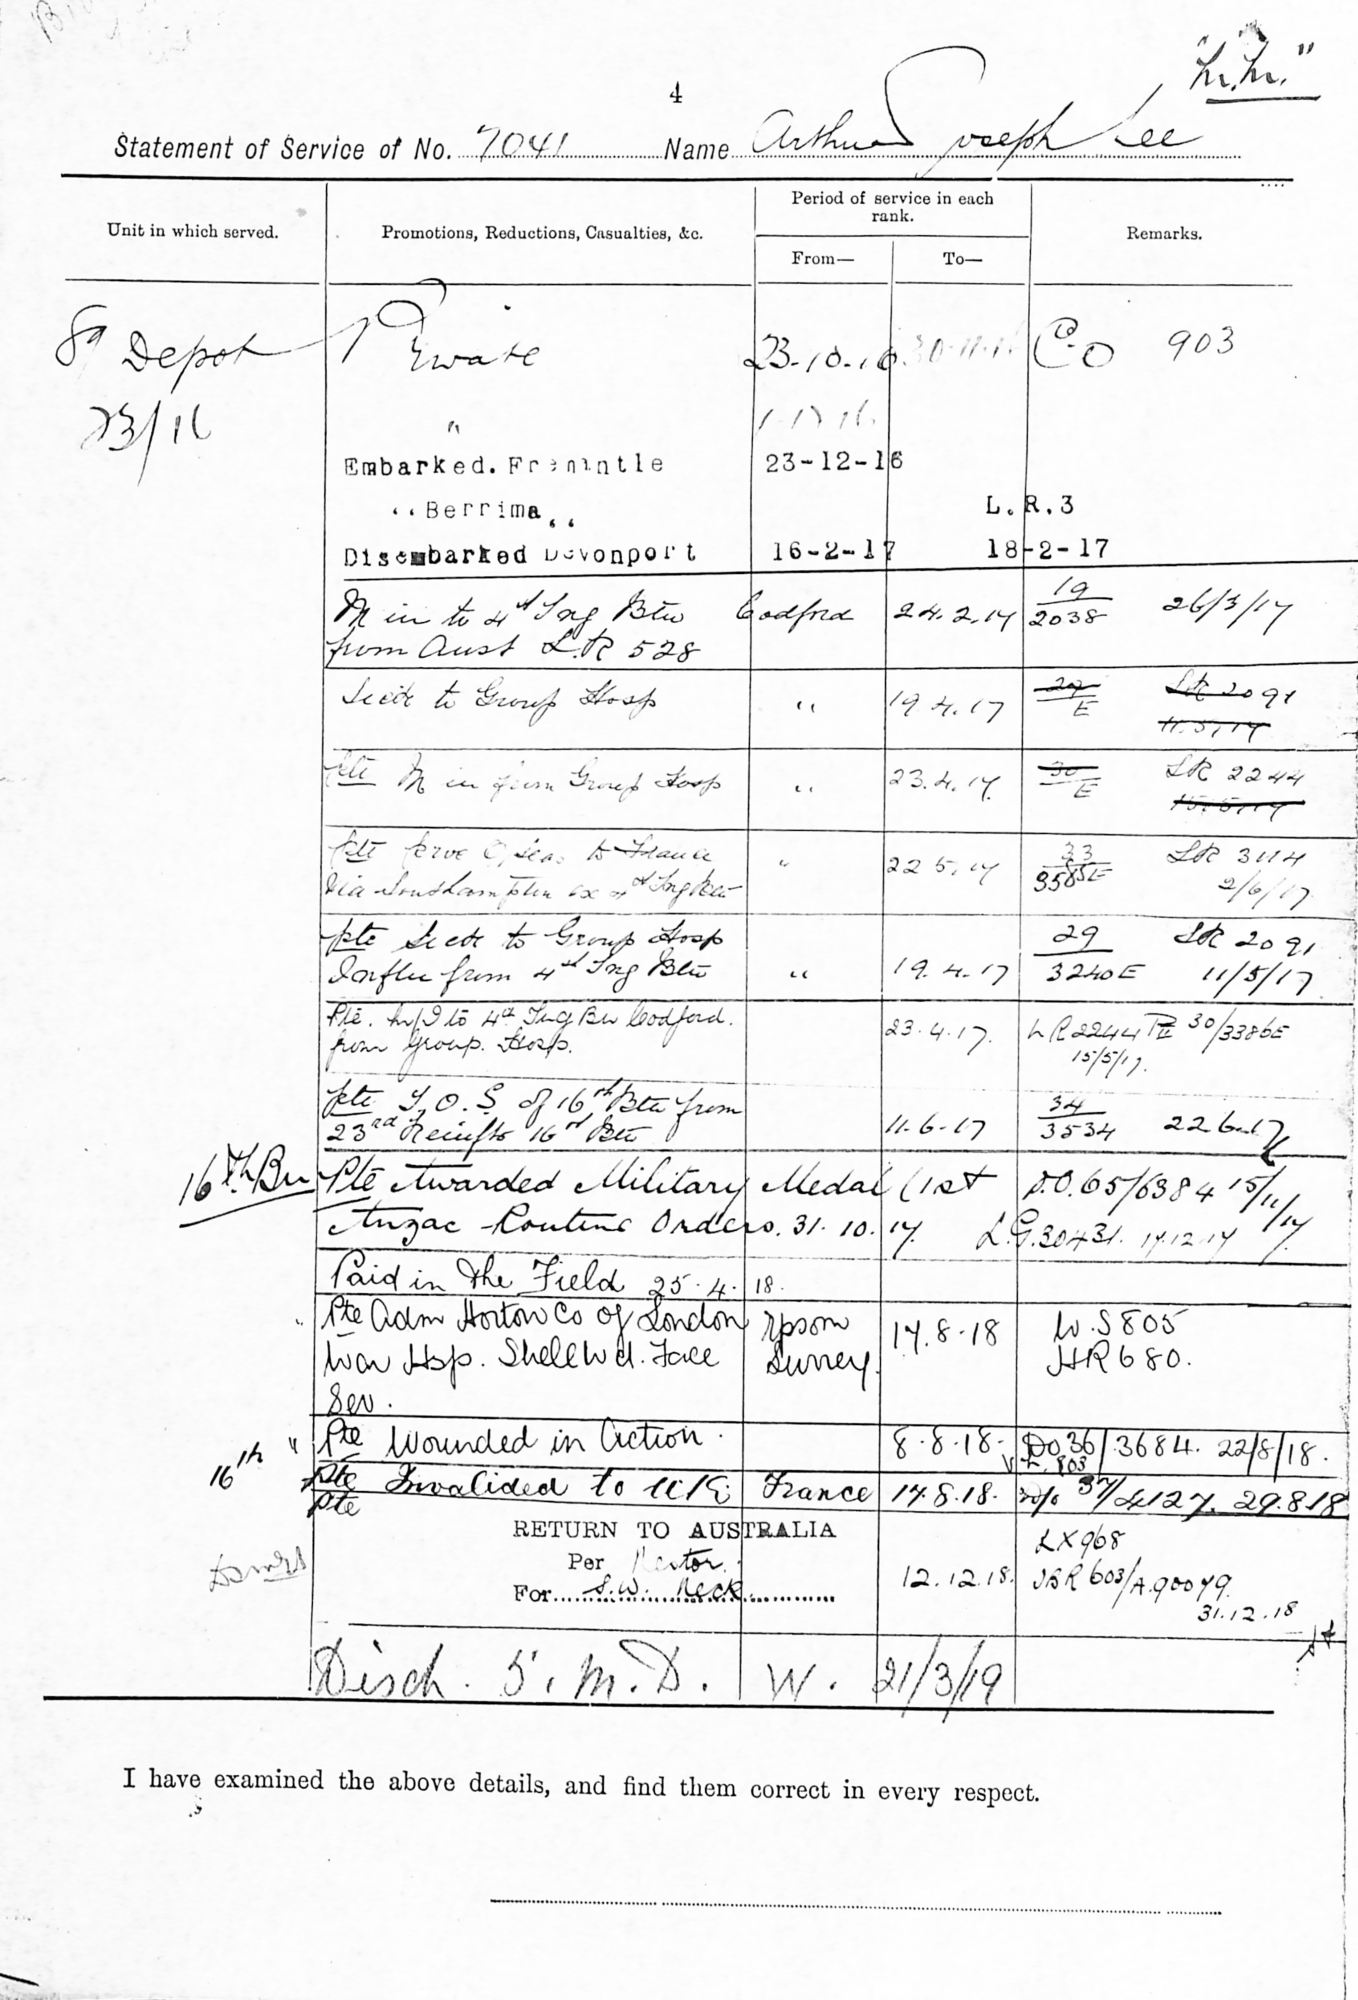 "M.M."
4
Statement of Service of No. 7041 Name Arthur Joseph Lee
Unit in which served. Promotions, Reductions, Casualties, &c. Period of service in each rank. Remarks.
From— To—
Depot Private 23-10-16 30-11-16 Co 903
23/16
" 1-12-16
Embarked. Fremantle 23-12-16
,,Berrima,, L.R.3
Disembarked Devonport 16-2-17 18-2-17
M in to 4th Tng Btn Codford 24.2.17 19/2038 26/3/17
from Aust L.R 528
Sick to Group Hosp " 19.4.17 29/E LR 2091
11.5.17
Pte M in from Group Hosp " 23.4.17. 30/E LR 2244
15.5.17
Pte proc O/seas to France " 22 5.17 33/3585E LR 3114
via Southampton ex 4th Tng Btn 2/6/17.
Pte Sick to Group Hosp 29/3240E LR 2091
Influ from 4th Tng Btn " 19.4.17 11/5/17
Pte. M/I to 4th Tng Bn Codford. 23.4.17. LR2244 30/3386E
from Group. Hosp. 15/5/17.
Pte T.O.S of 16th Btn from 34/3534 22 6.17
23rd Reinfts 16th Btn 11.6.17
16th Bn Pte Awarded Military Medal (1st D.O.65/6384 15/11/17
Anzac Routine Orders. 31.10.17. L.G.30431. 17.12.17
Paid in the Field 25.4.18.
" Pte adm Horton Co of London Epsom 17.8.18 W.S805
War Hsp. Shell Wd. Face Surrey. HR680.
Sev.
" Pte Wounded in Action. 8.8.18. DO.36/3684. 22/8/18.
16th Pte Invalided to U.K. France 17.8.18. 37/4127. 29.8.18
Pte
RETURN TO AUSTRALIA LX968
Per Nestor. 12.12.18. JBR603/A.90079.
For S.W. Neck 31.12.18
Disch. 5.M.D. W. 21/3/19
I have examined the above details, and find them correct in every respect.